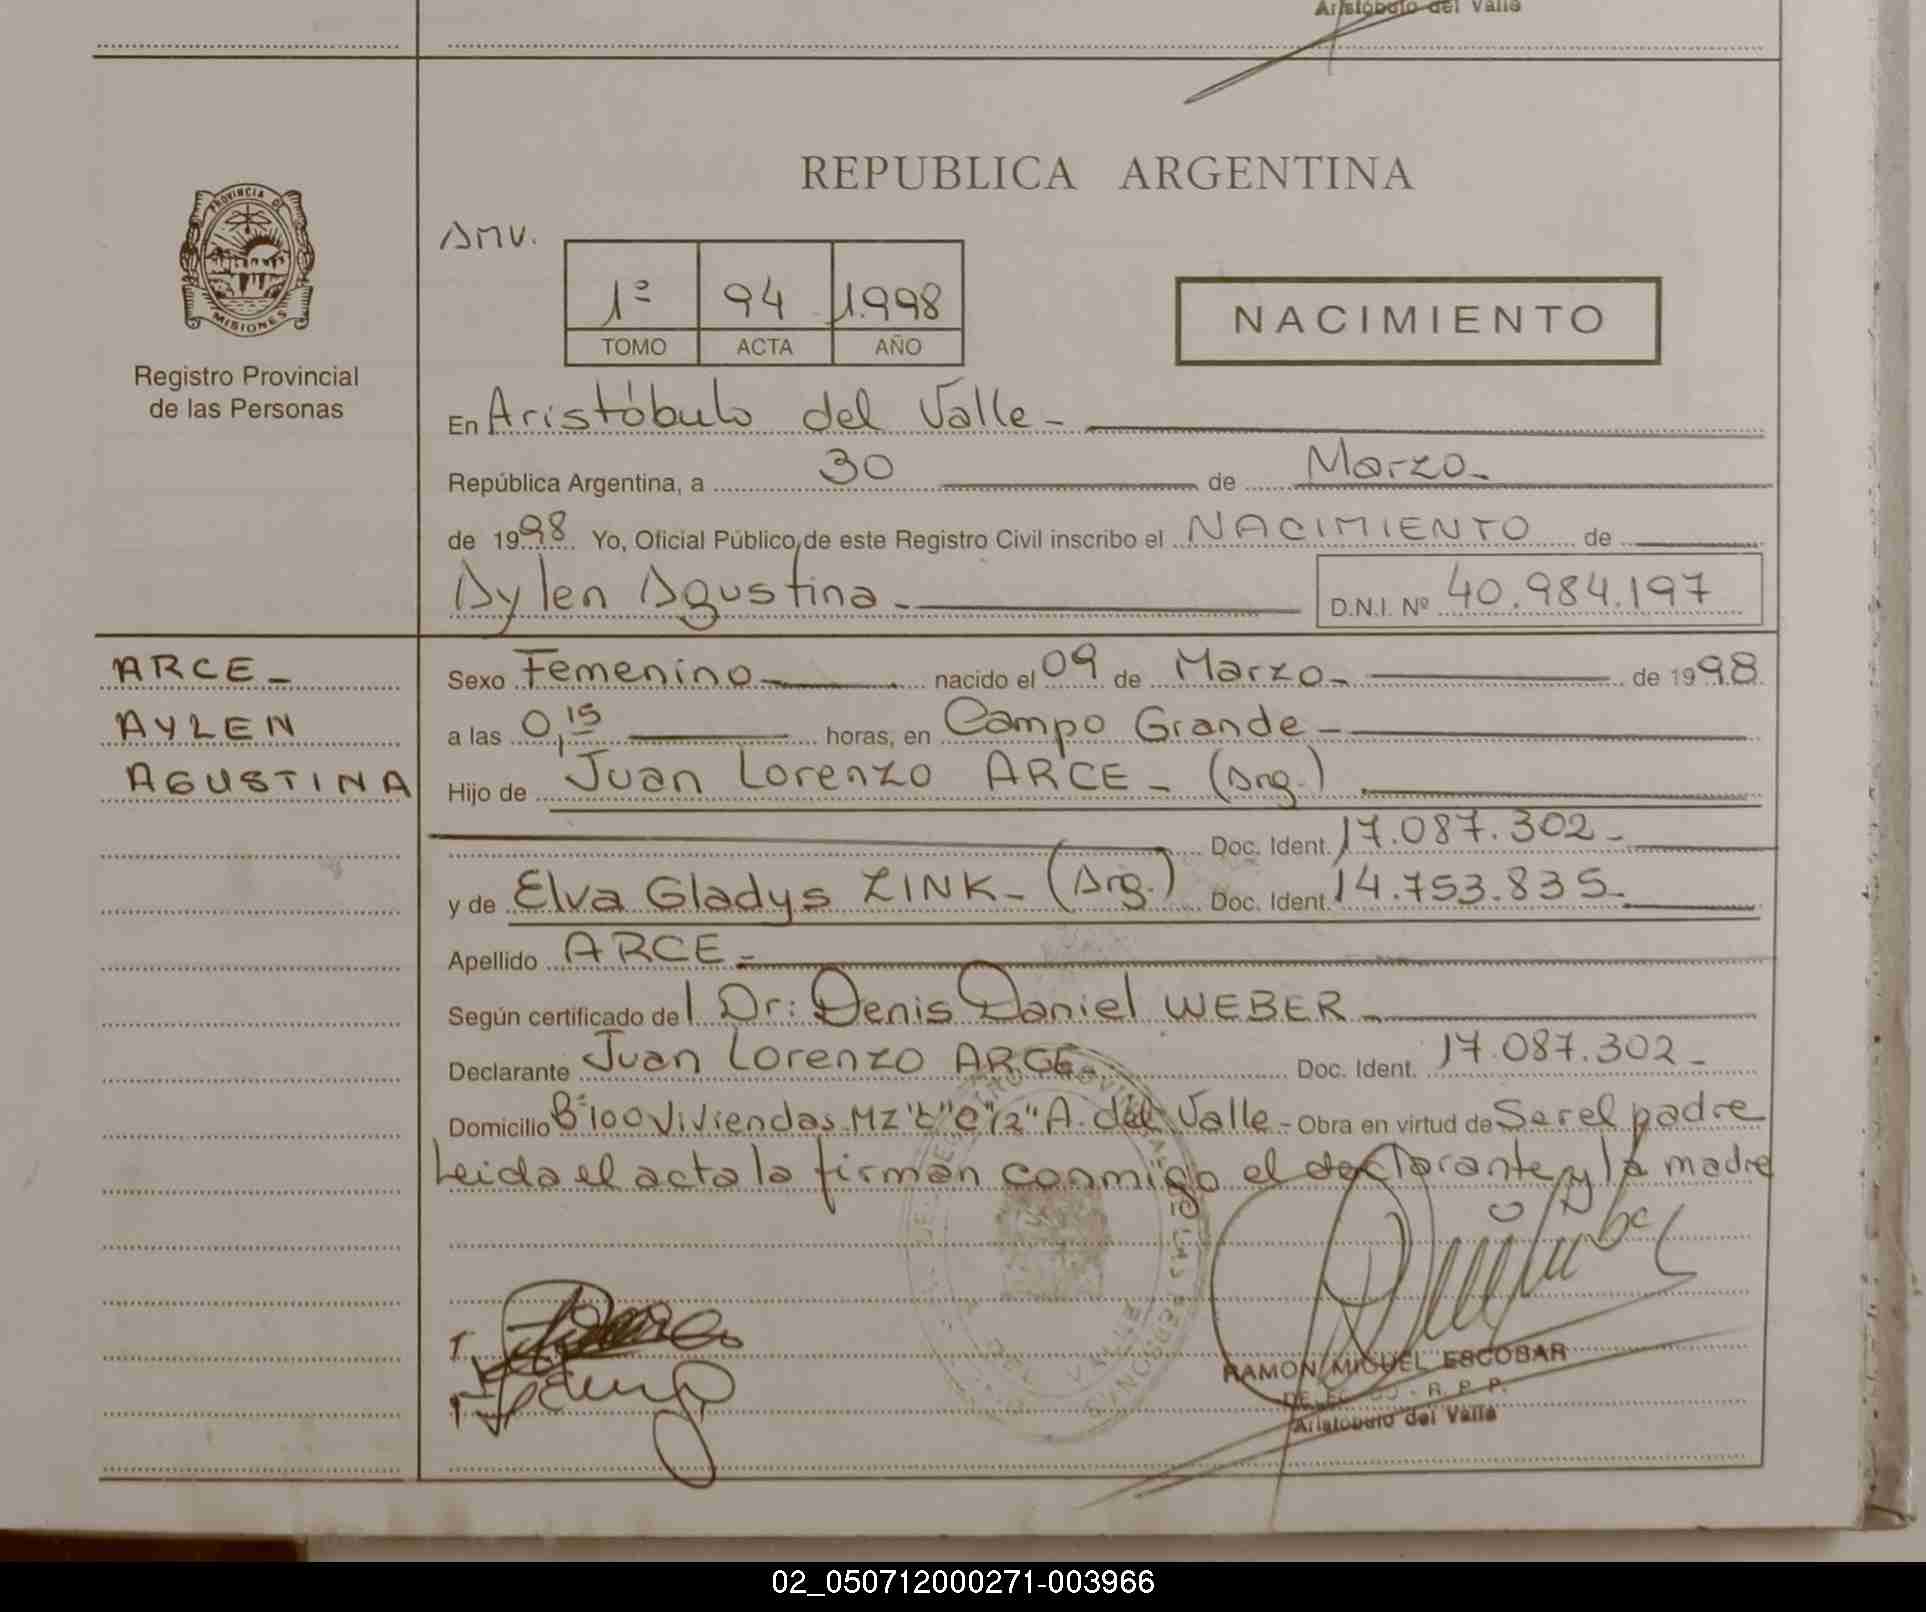 Aristóbulo del Valle
PROVINCIA DE
MISIONES
Registro Provincial
de las Personas
REPUBLICA ARGENTINA
AMV.
1º 94 1.998
TOMO ACTA AÑO
NACIMIENTO
En Aristóbulo del Valle-
República Argentina, a 30 de Marzo-
de 1998 Yo, Oficial Público de este Registro Civil inscribo el NACIMIENTO de
Aylen Agustina- D.N.I. Nº 40.984.197
ARCE-
AYLEN
AGUSTINA
Sexo Femenino- nacido el 09 de Marzo- de 1998
a las 0,15 horas, en Campo Grande-
Hijo de Juan Lorenzo ARCE- (Arg.)
Doc. Ident. 17.087.302-
y de Elva Gladys ZINK- (Arg.) Doc. Ident. 14.753.835-
Apellido ARCE-
Según certificado del Dr: Denis Daniel WEBER-
Declarante Juan Lorenzo ARCE- Doc. Ident. 17.087.302-
Domicilio Bº100 Viviendas MZ "C" A. del Valle- Obra en virtud de Ser el padre
Leida el acta la firman conmigo el declarante y la madre
RAMON MIGUEL ESCOBAR
R. P. P.
Aristóbulo del Valle
02_050712000271-003966